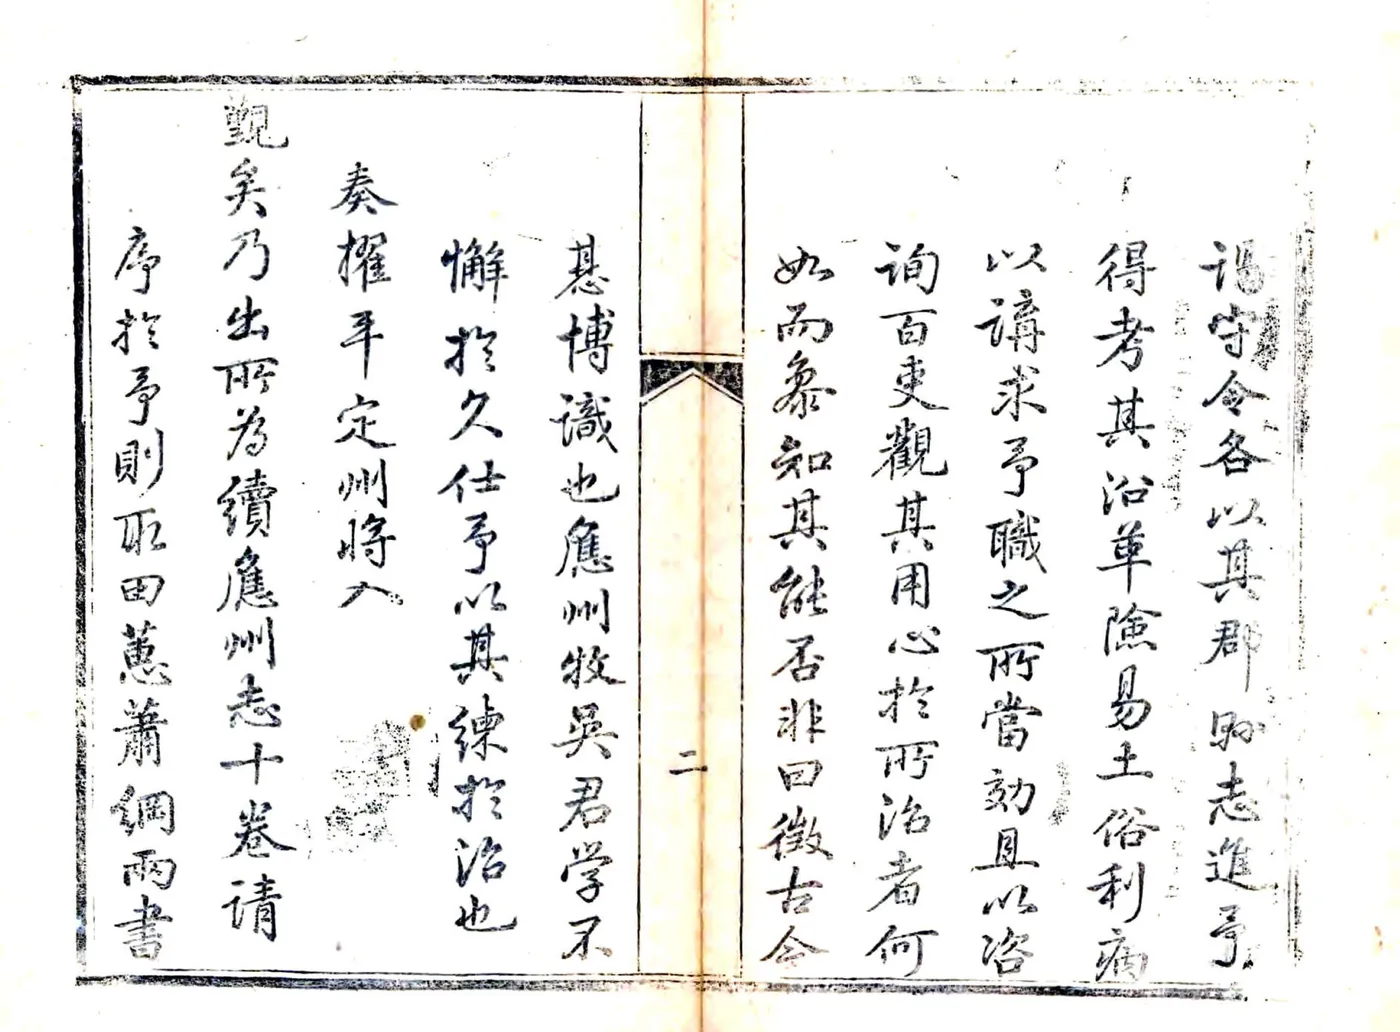 謁守令各以其郡縣志進予
得考其沿革險易土俗利病
以講求予職之所當効且以咨
詢百吏觀其用心於所治者何
如而叅知其能否非曰徵古今
惎博識也應州牧吳君学不
懈於久仕予以其練於治也
奏擢平定州將入
覲矣乃出所為續應州志十卷请
序於予則取田蕙蕭綱兩書
二